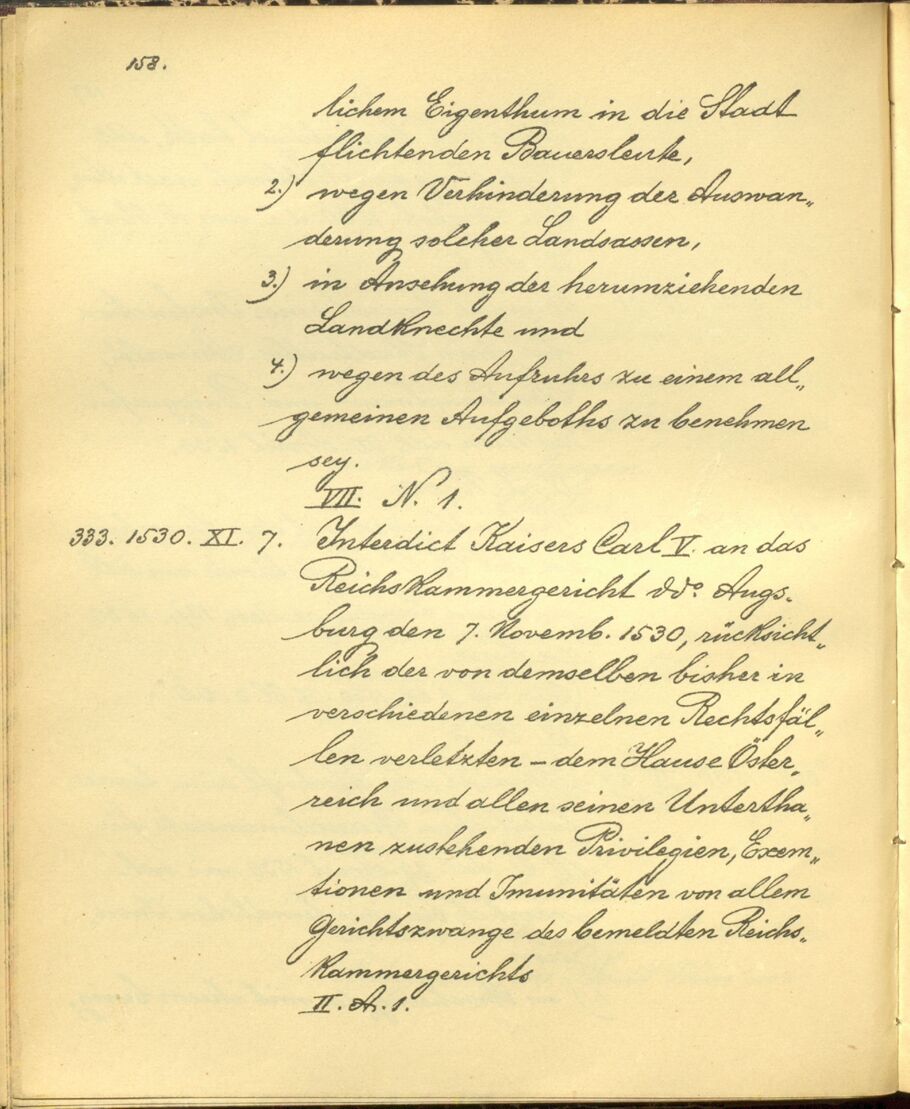 158.
lichem Eigenthum in die Stadt
flichtenden Bauersleute,
2.) wegen Verhinderung der Auswan„
derung solcher Landsassen,
3.) in Ansehung der herumziehenden
Landknechte und
4.) wegen des Aufruhrs zu einem all„
gemeinen Aufgeboths zu benehmen
sey.
VII. N. 1.
333. 1530. XI. 7. Interdict Kaisers Carl V. an das
Reichskammergericht ddo. Augs„
burg den 7. Novemb. 1530, rücksicht„
lich der von demselben bisher in
verschiedenen einzelnen Rechtsfäl„
len verletzten – dem Hause Öster„
reich und allen seinen Untertha„
nen zustehenden Privilegien, Exem„
tionen und Imunitäten von allem
Gerichtszwange des bemeldten Reichs„
kammergerichts
II. A. 1.